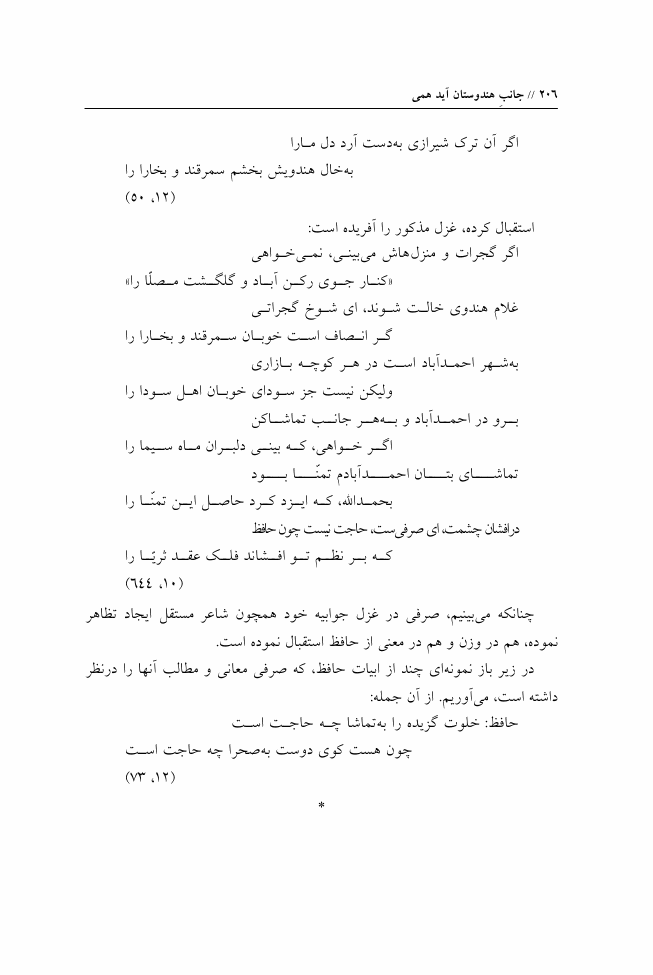 ۲۰۶ // جانبِ هندوستان آید همی
اگر آن ترک شیرازی به‌دست آرد دل مارا
به‌خال هندویش بخشم سمرقند و بخارا را
(۱۲، ۵۰)
استقبال کرده، غزل مذکور را آفریده است:
اگر گجرات و منزل‌هاش می‌بینی، نمی‌خواهی
«کنار جوی رکن آباد و گلگشت مصلّا را»
غلام هندوی خالت شوند، ای شوخ گجراتی
گر انصاف است خوبان سمرقند و بخارا را
به‌شهر احمدآباد است در هر کوچه بازاری
ولیکن نیست جز سودای خوبان اهل سودا را
برو در احمدآباد و به‌هر جانب تماشاکن
اگر خواهی، که بینی دلبران ماه سیما را
تماشای بتان احمدآبادم تمنّا بود
بحمدالله، که ایزد کرد حاصل این تمنّا را
درافشان چشمت، ای صرفی‌ست، حاجت نیست چون حافظ
که بر نظم تو افشاند فلک عقد ثریّا را
(۱۰، ۶۴۴)
چنانکه می‌بینیم، صرفی در غزل جوابیه خود همچون شاعر مستقل ایجاد تظاهر
نموده، هم در وزن و هم در معنی از حافظ استقبال نموده است.
در زیر باز نمونه‌ای چند از ابیات حافظ، که صرفی معانی و مطالب آنها را درنظر
داشته است، می‌آوریم. از آن جمله:
حافظ: خلوت گزیده را به‌تماشا چه حاجت است
چون هست کوی دوست به‌صحرا چه حاجت است
(۱۲، ۷۳)
*